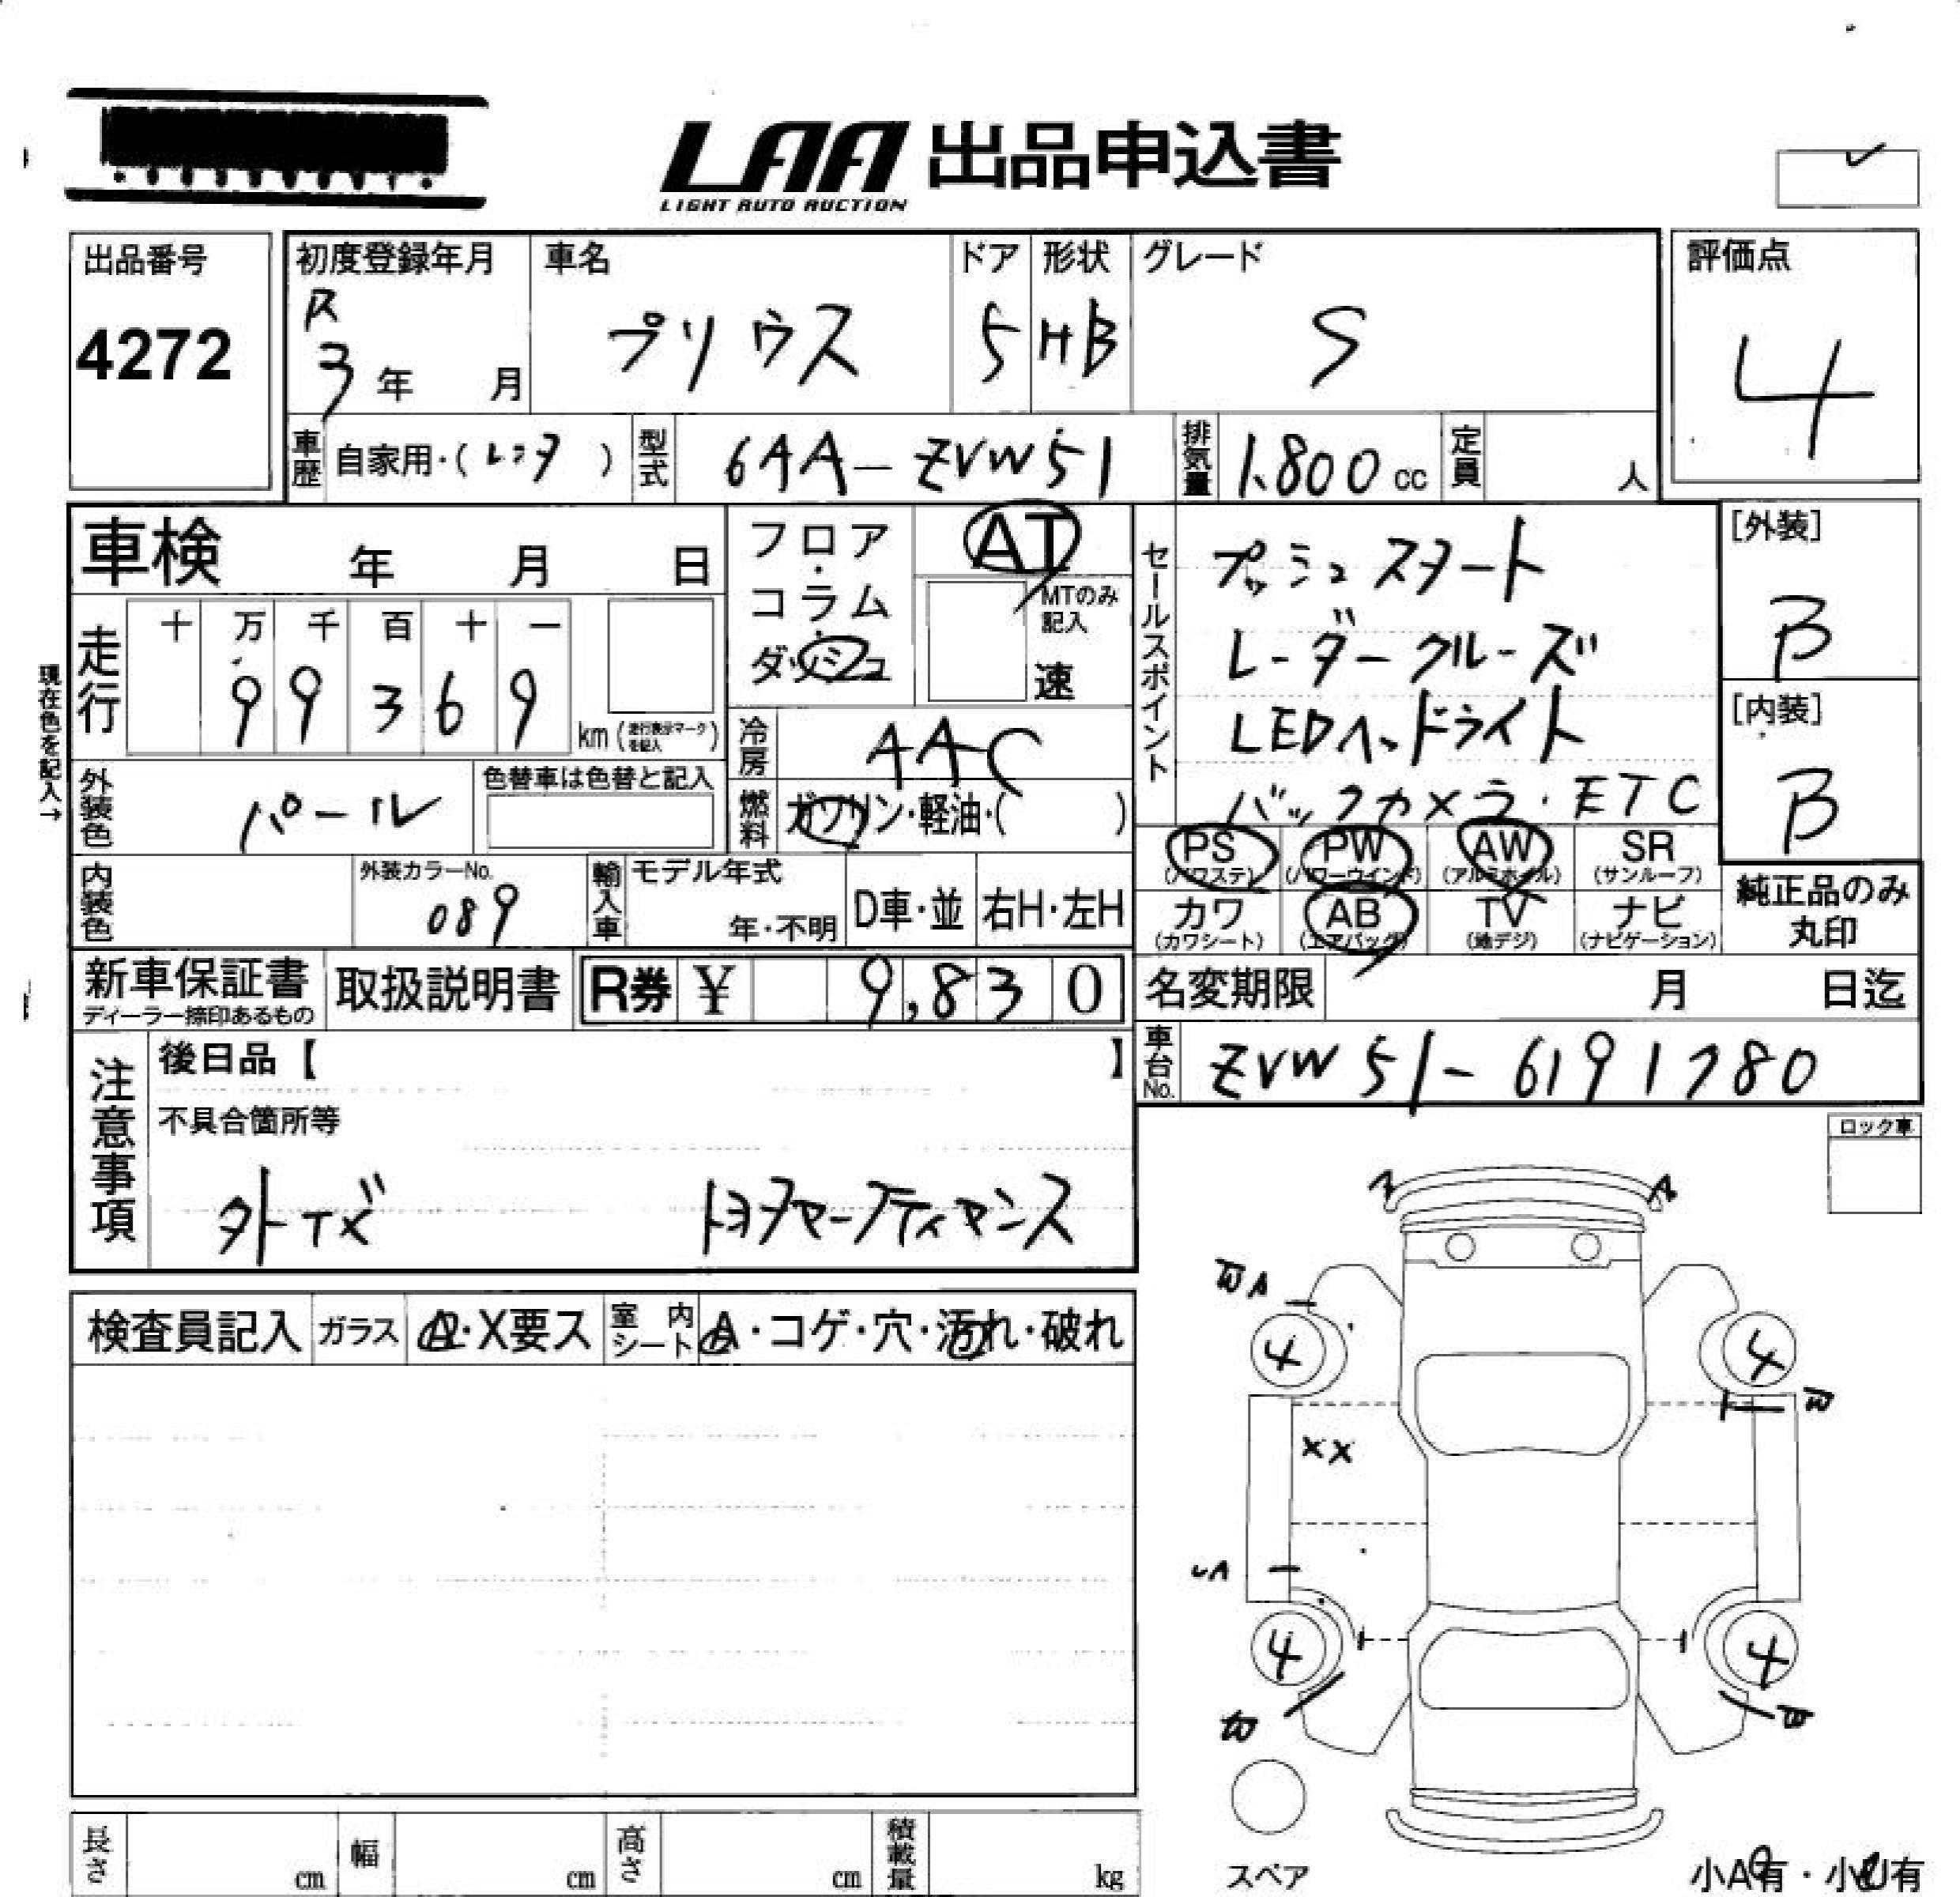 LAA 出品申込書
LIGHT AUTO AUCTION
出品番号
4272
初度登録年月
R
3年 月
車名
プリウス
ドア
5
形状
HB
グレード
S
評価点
4
車歴 自家用・(レンタ)
型式 6AA-ZVW51
排気量 1.800cc
定員 人
車検 年 月 日
フロア・コラム・ダッシュ
AT
MTのみ記入
速
走行
十 万 千 百 十 一
9 9 3 6 9
km(走行表示マークを記入)
現在色を記入→
冷房 AAC
外装色 パール
色替車は色替と記入
燃料 ガソリン・軽油・( )
内装色
外装カラーNo.
089
輸入車
モデル年式
年・不明
D車・並
右H・左H
セールスポイント
プッシュスタート
レーダークルーズ
LEDヘッドライト
バックカメラ・ETC
[外装]
B
[内装]
B
PS (パワステ)
PW (パワーウインド)
AW (アルミホイル)
SR (サンルーフ)
カワ (カワシート)
AB (エアバッグ)
TV (地デジ)
ナビ (ナビゲーション)
純正品のみ
丸印
新車保証書
ディーラー締印あるもの
取扱説明書
R券 ¥ 9,830
名変期限 月 日迄
車台No. ZVW51-6191780
注意事項
後日品【 】
不具合箇所等
外キズ
ロック車
検査員記入
ガラス A・X要ス
室内シート A・コゲ・穴・汚れ・破れ
WA
4
4
W
XX
4
4
長さ cm
幅 cm
高さ cm
積載量 kg
スペア
小A有・小U有